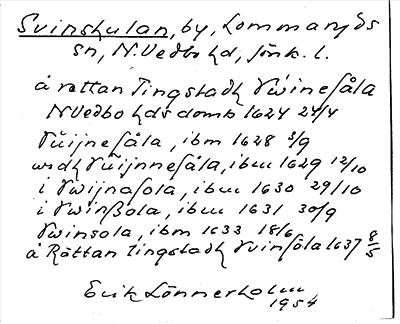 Svinskulan, by, Lommaryds
sn, N. Vedbo hd, Jönk. l.
å rättan Tingstadh Twinesåla
N Vedbo hds domb 1624 24/4
Tuijnesåla, ibm 1628 3/9
widh Tuijnnesåla, ibm 1629 12/10
i Twijnasola, ibm 1630 29/10
i Twinßola, ibm 1631 30/9
Twinsola, ibm 1633 18/6
å Rättan Tingstadh Tvinsöla 1637 8/5
Erik Lönnerholm
1954